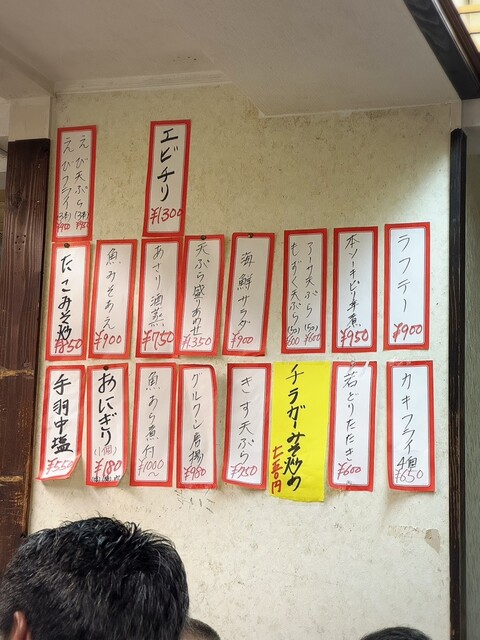 エビチリ
¥1300
えび天ぷら(3本)
えびフライ(3本)
ラフテー
¥900
本ソーキピリ辛煮
¥950
アーサ天ぷら(5コ)
もずく天ぷら(5コ)
¥600
¥600
海鮮サラダ
¥900
天ぷら盛りあわせ
¥1350
あさり酒蒸
¥750
魚みそあえ
¥900
たこみそ炒め
¥850
カキフライ4個
¥650
若どりたたき
¥600
チラガーみそ炒め
七五〇円
きす天ぷら
¥750
グルクン唐揚
¥980
魚あら煮付
¥1000〜
おにぎり
(1個)
¥180
手羽中塩
¥550